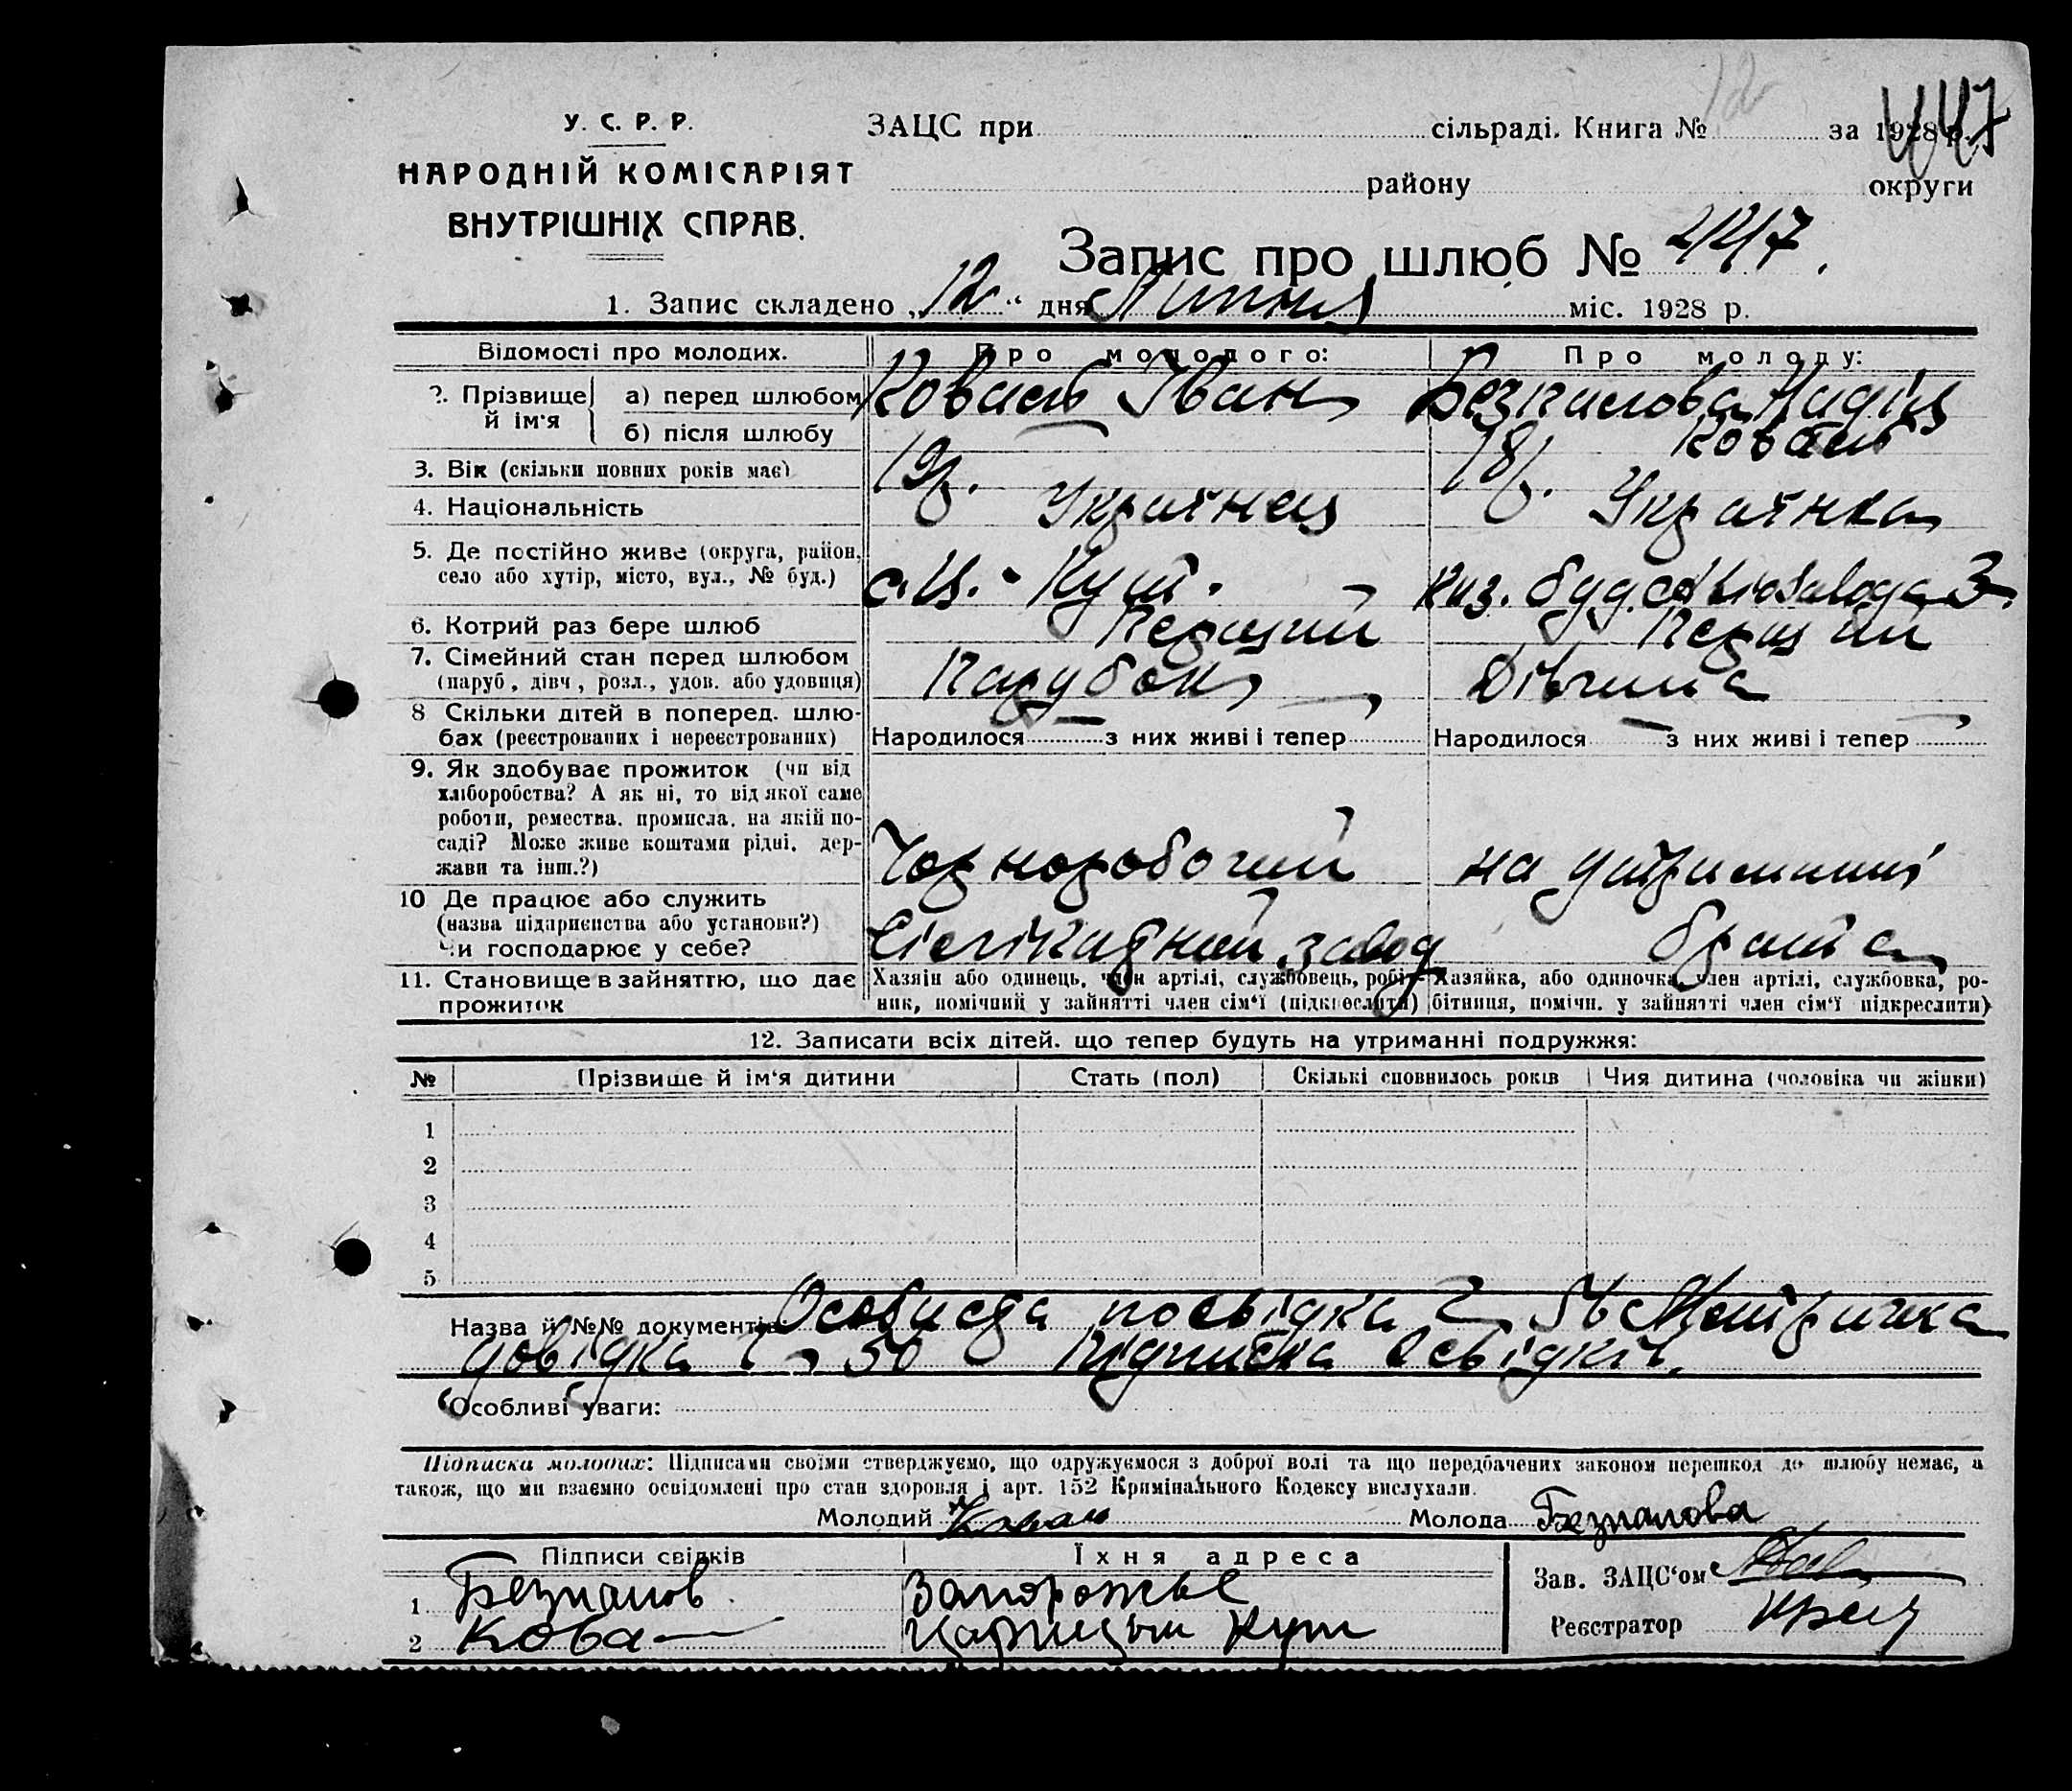 447
У. С. Р. Р.
НАРОДНІЙ КОМІСАРІЯТ
ВНУТРІШНІХ СПРАВ.
ЗАЦС при сільраді. Книга № 12 за 1928 р.
району округи
Запис про шлюб № 447.
1. Запис складено „12“ дня Липня міс. 1928 р.
Відомості про молодих. Про молодого: Про молоду:
2. Прізвище й ім'я а) перед шлюбом Иван Надія
б) після шлюбу
3. Вік (скільки повних років має) 19 р. 18 р.
4. Національність Українець Українка
5. Де постійно живе (округа, район, село або хутір, місто, вул., № буд.) с. Ц.-Кут. буд. 3
6. Котрий раз бере шлюб Перший Перший
7. Сімейний стан перед шлюбом (паруб, дівч, розл., удов. або удовиця) Парубок Дівчина
8 Скільки дітей в поперед. шлюбах (реєстрованих і нереєстрованих) Народилося — з них живі і тепер — Народилося — з них живі і тепер —
9. Як здобуває прожиток (чи від хліборобства? А як ні, то від якої саме роботи, ремества, промисла, на якій посаді? Може живе коштами рідні, держави та інш.?) Чорноробочий на утриманні
10 Де працює або служить (назва підприєнства або установи?) Чи господарює у себе? завод брата
11. Становище в зайняттю, що дає прожиток Хазяїн або одинець, член артілі, службовець, робітник, помічний у зайнятті член сім'ї (підкреслити) Хазяйка, або одиночка, член артілі, службовка, робітниця, помічн. у зайнятті член сім'ї підкреслити)
12. Записати всіх дітей, що тепер будуть на утриманні подружжя:
№ Прізвище й ім'я дитини Стать (пол) Скількі сповнилось років Чия дитина (чоловіка чи жінки)
1
2
3
4
5
Назва й №№ документів: Особиста посвідка Метрична
довідка 50 Підписка свідків.
Особливі уваги:
Підписка молодих: Підписами своїми стверджуємо, що одружуємося з доброї волі та що передбачених законом перешкод до шлюбу немає, а
також, що ми взаємно освідомлені про стан здоровля і арт. 152 Кримінального Кодексу вислухали.
Молодий Молода Безпалова
Підписи свідків Їхня адреса
1 Безпалов Запорожье Зав. ЗАЦС'ом
2 Царицын Кут Реєстратор